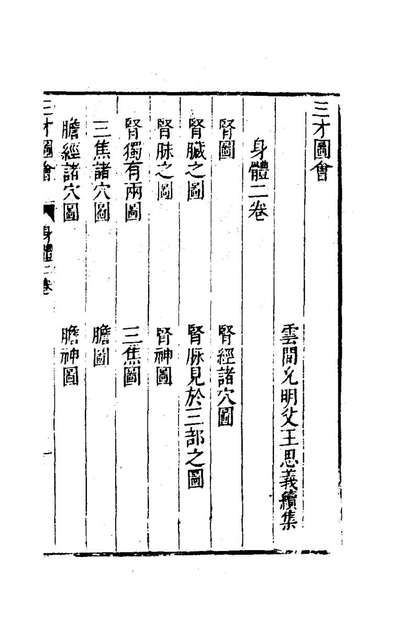 三才圖會
雲間允明父王思義續集
身體二卷
腎圖
腎經諸穴圖
腎臟之圖
腎脉見於三部之圖
腎脉之圖
腎神圖
腎獨有兩圖
三焦圖
三焦諸穴圖
膽圖
膽經諸穴圖
膽神圖
三才圖會
身體二卷
一